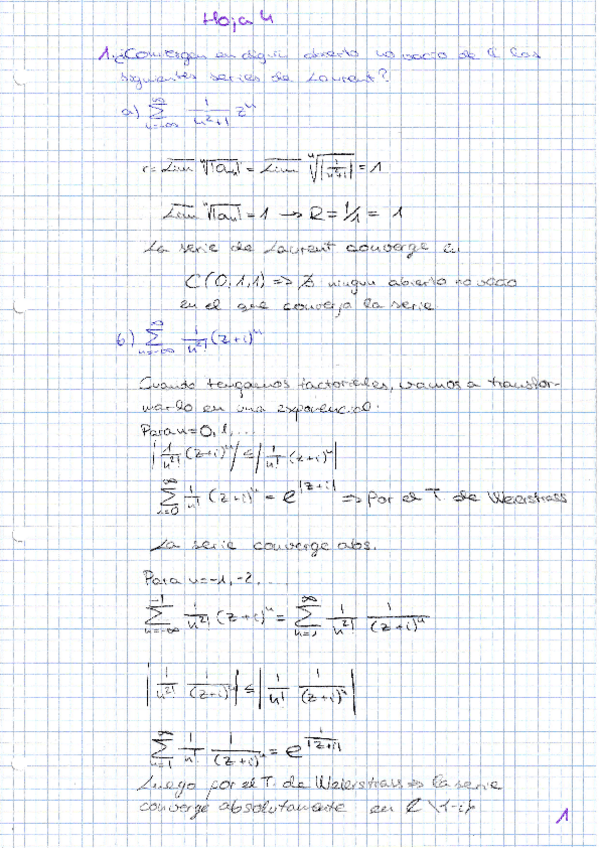 Hoja 4
1. ¿Convergen en algún abierto no vacío de ℂ las
siguientes series de Laurent?
a) ∑_{n=-∞}^{∞} 1/(n²+1) zⁿ
r = \overline{Lim} ⁿ√|aₙ| = \overline{Lim} ⁿ√|1/(n²+1)| = 1
\overline{Lim} ⁿ√|aₙ| = 1 → R = 1/1 = 1
La serie de Laurent converge en
C(0,1,1) => ∄ ningun abierto no vacio
en el que converja la serie
b) ∑_{n=-∞}^{∞} 1/n²! (z+i)ⁿ
Cuando tengamos factoriales, vamos a transfor-
marlo en una exponencial.
Para n=0,1,...
|1/n²! (z+i)ⁿ| ≤ |1/n! (z+i)ⁿ|
∑_{n=0}^{∞} 1/n! (z+i)ⁿ = e^{|z+i|} => Por el T. de Weierstrass
La serie converge abs.
Para n=-1,-2,...
∑_{n=-∞}^{-1} 1/n²! (z+i)ⁿ = ∑_{n=1}^{∞} 1/n²! 1/(z+i)ⁿ
|1/n²! 1/(z+i)ⁿ| ≤ |1/n! 1/(z+i)ⁿ|
∑_{n=1}^{∞} 1/n! 1/(z+i)ⁿ = e^{1/|z+i|}
Luego por el T. de Weierstrass => la serie
converge absolutamente en ℂ\{-i}
1